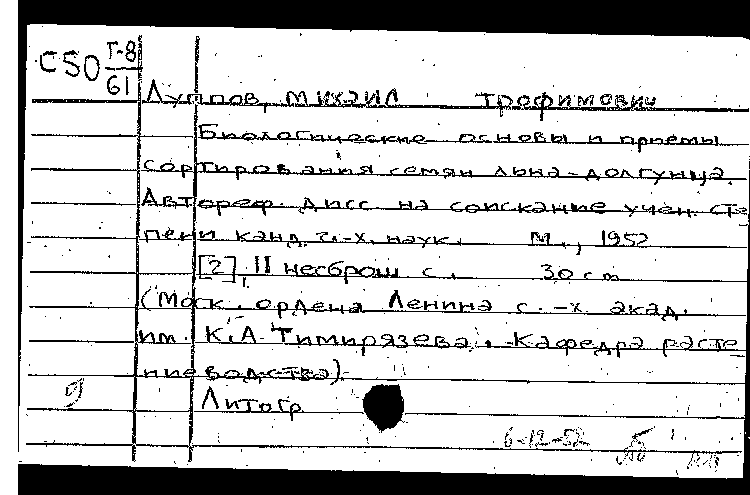 С50 Т-8
61
Луппов, Михаил Трофимович
Биологические основы и приемы
сортирования семян льна-долгунца.
Автореф. дисс. на соискание учен. сте-
пени канд. с.-х. наук. М., 1952
[2], 11 несброш. с. 30 cm
(Моск. ордена Ленина с.-х. акад.
им. К.А. Тимирязева. Кафедра расте-
ниеводства).
Литогр.
6-12-52